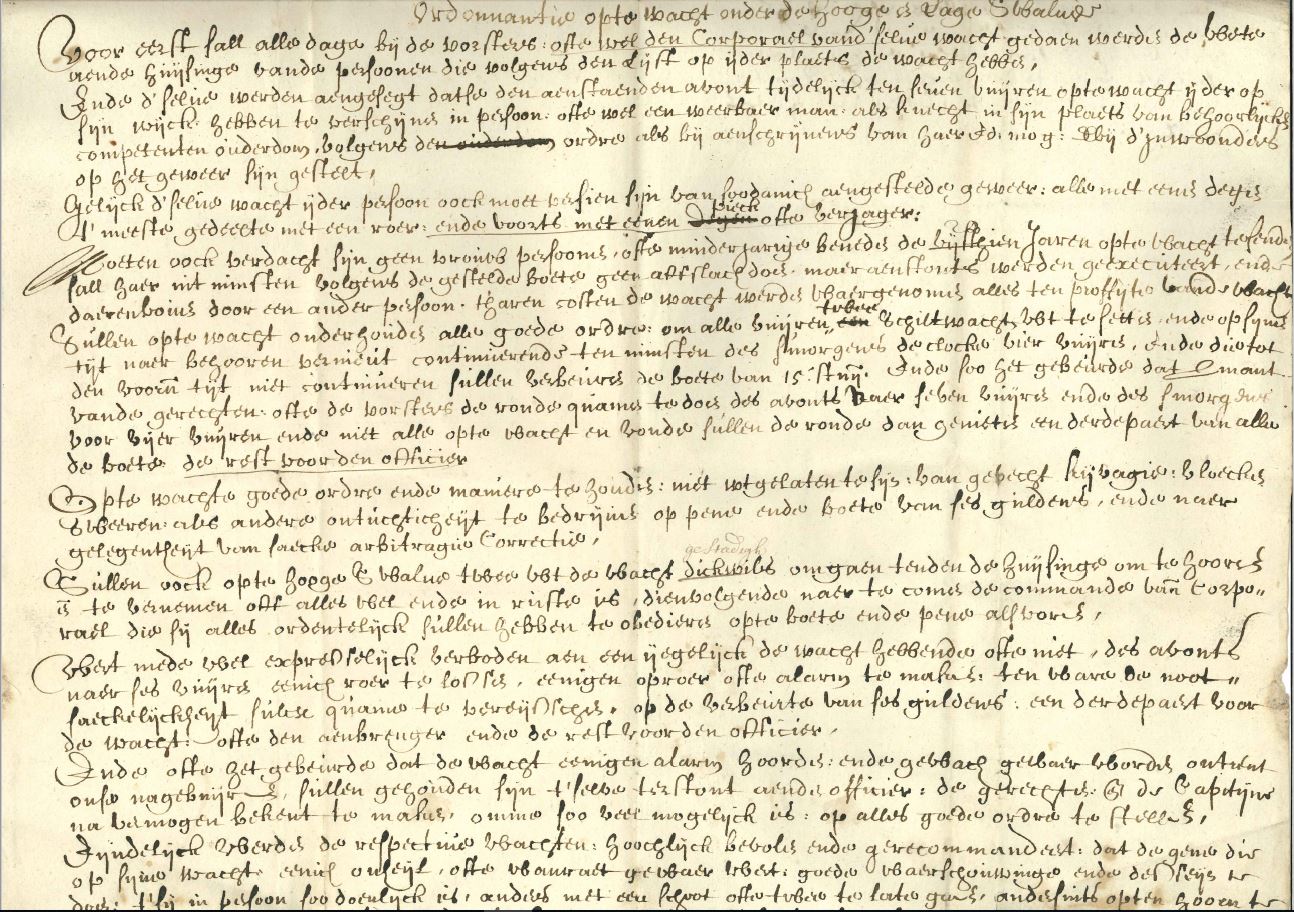 Ordonnantie opte wacht onder de Hooge en Lage Swalue
Voor eerst sall alle dage bij de vorsters: ofte wel den Corporael vand' selue wacht gedaen werden de wete
aende huijsinge vande persoonen die volgens den Lijst op ijder plaets de wacht hebben,
Ende d'selue werden aengesegt datse den aenstaenden avont tijdelijck ten seuen vuijren opte wacht ijder op
sijn wijck hebben te verschijnen in persoon: ofte wel een weerbaer man: als knecht in sijn plaets van behoorlijcken
competenten ouderdom, volgens den ouderdom ordre als bij aenschrijvens van haer Ed: mog: bij d'Inwoonders
op het geweer sijn gestelt,
Gelijck d'selue wacht ijder persoon oock moet versien sijn van soodanich aengestelde geweer: alle met eenen degen
t' meeste gedeelte met een roer: ende voorts met eenen degen pieck ofte verjager:
Moeten oock verdacht sijn geen vrouws persoonen, ofte minderjarige beneden de vijfthien Jaren opte wacht te senden
sall haer int minsten volgens de gestelde boete geen affslach doen, maer aenstonts werden geexecuteert, ende
daerenboven door een ander persoon tharen costen de wacht werden waergenomen alles ten proffijte vande wacht
Sullen opte wacht onderhouden alle goede ordre: om alle vuijren een twee Schiltwachten wt te setten ende op sijnen
tijt naer behooren vernieut continuerende ten minsten des smorgens de clocke vier vuijren, Ende die tot
den voorn tijt niet continueren sullen verbeuren de boete van 15: st: Ende soo het gebeurde dat Imant
vande gerechten: ofte de vorsters de ronde quamen te doen des avonts naer seven vuijren ende des smorgens
voor vijer vuijren ende niet alle opte wacht en vonde sullen de ronde dan genieten een derdepaert van alle
de boete: de rest voor den officier
Opte wachte goede ordre ende maniere te houden: niet wtgelaten te sijn: van gevecht kijvagie: vloecken
Sweeren: als andere ontuchticheijt te bedrijven op pene ende boete van ses guldens, ende naer
gelegentheijt van saecke arbitragie Correctie,
Sullen oock opte hooge Swalue twee wt de wacht dickwils gestadigh omgaen tenden de huijsinge om te hooren
en te vernemen off alles wel ende in ruste is, dienvolgende naer te comen de commande van Corpo-
rael die sij alles ordentelijck sullen hebben te obedieren opte boete ende pene als voren,
Wert mede wel expresselijck verboden aen een ijegelijck de wacht hebbende ofte niet, des avonts
naer ses vuijren eenich roer te lossen, eenigen oproer ofte alarm te maken: ten ware de noot-
saeckelijckheijt sulcx quame te vereijsschen, op de verbeurte van ses guldens: een derdepaert voor
de wacht: ofte den aenbrenger ende de rest voor den officier,
Ende ofte het gebeurde dat de wacht eenigen alarm hoorden: ende gewach gewaer worden ontrent
onse nagebuijren, sullen gehouden sijn t'selve terstont aende officier: de gerechten: & de Capitijne
na vermogen bekent te maken, omme soo veel mogelijck is: op alles goede ordre te stellen,
Eijndelijck werden de respective wachten: hoochlijck bevolen ende gerecommandeert: dat de gene die
op sijne wacht eenich onheijl, ofte onraet gewaer wert: goede waerschouwinge ende
doen: t'sij in persoon soo doenlijck is, anders met een schoot ofte twee te laten gaen, andersints opten hooren te